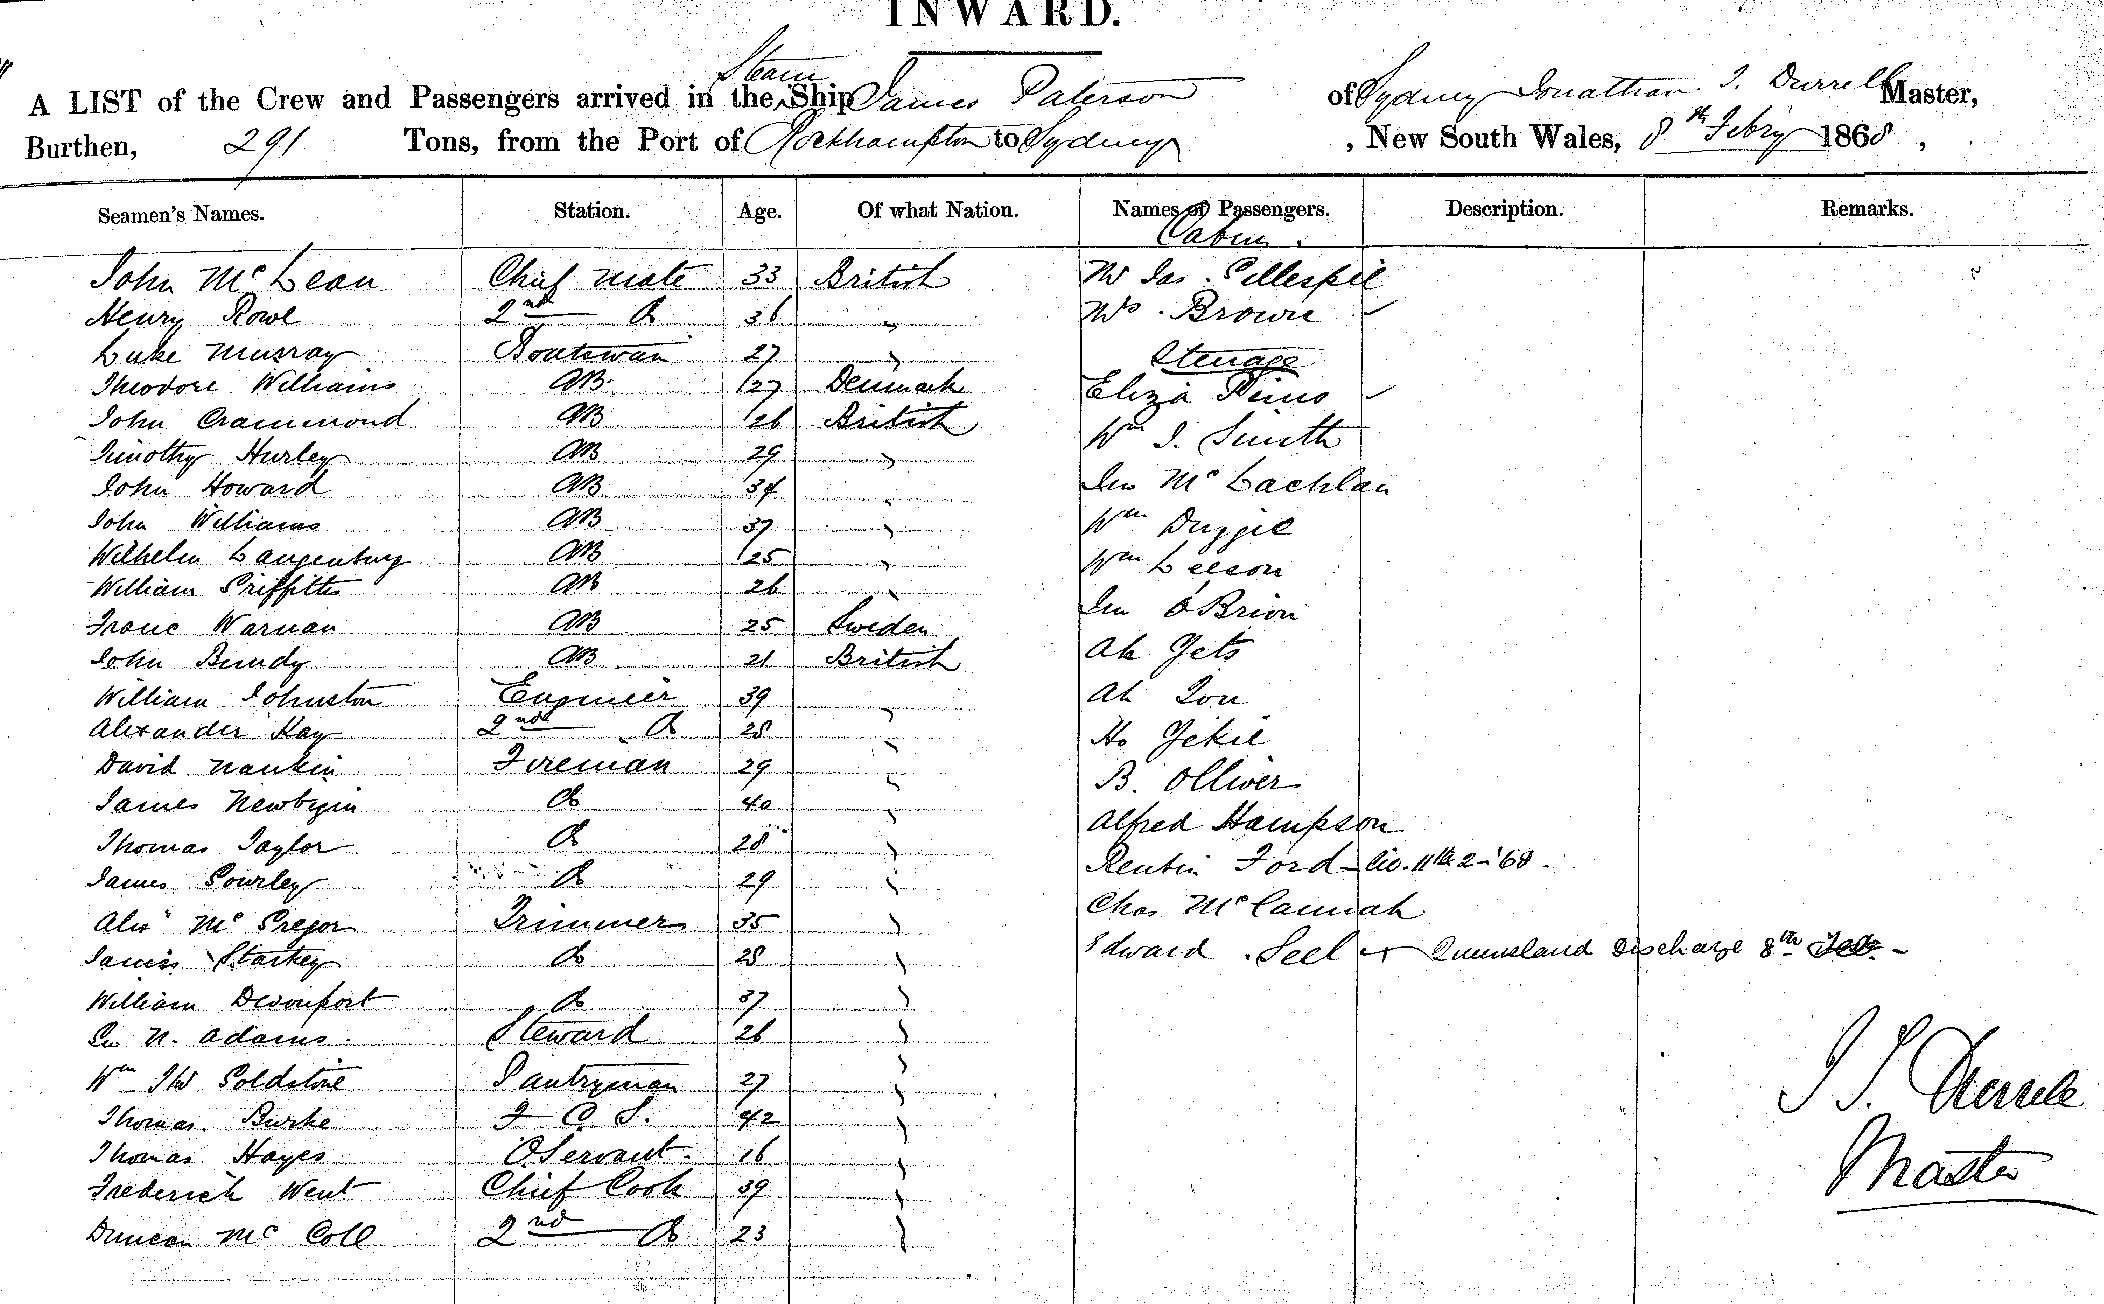 INWARD.
A LIST of the Crew and Passengers arrived in the Steam Ship James Paterson of Sydney Jonathan. S. Durrell Master,
Burthen, 291 Tons, from the Port of Rockhampton to Sydney , New South Wales, 8th Febry 1868 ,
Seamen's Names. Station. Age. Of what Nation. Names of Passengers. Description. Remarks.
Cabin.
John McLean Chief Mate 33 British Mr Jas. Gillespie
Henry Rowe 2nd Do 36 " Mrs. Brown
Luke Murray Boatswain 27 " Steerage
Theodore Williams AB 27 Denmark Eliza
John Crammond AB 26 British Wm J. Smith
Timothy Hurley AB 29 "
John Howard AB 34 " Jno McLachlan
John Williams AB 37 " Wm Duggie
Wilhelm Langenburg AB 25 " Wm Leeson
William Griffiths AB 26 " Jno O'Brion
Franc Warnan AB 25 Sweden
John Bundy AB 21 British Ah Gets
William Johnston Engineer 39 " Ah Lou
Alexander Kay 2nd Do 28 " Ho Yekie
David Nankin Fireman 29 " B. Olliver
James Newbigin Do 40 "
Thomas Taylor Do 28 " Alfred Hampson
James Gourley Do 29 " Reubin Ford - 11th 2-'68.
Alexr McGregor Trimmer 35 " Chas McCannah
James Starkey Do 28 " Edward Seel Queensland Discharge 8th Feb.
William Devonport Do 37 "
N. Adams Steward 26 "
Wm Goldstone Pantryman 27 " J S. Durrell
Thomas Burke F C S. 42 "
Thomas Hayes O Servant. 16 " Master
Frederick Went Chief Cook 39 "
Duncan McColl 2nd Do 23 "